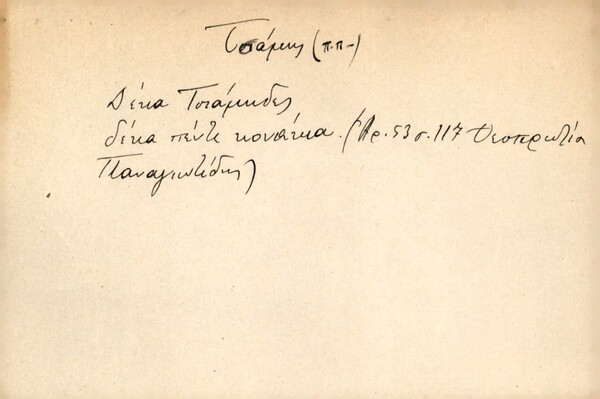 Τσάμης (π.π-)
Δέκα Τσάμηδες
δέκα πέντε κονάκια. (Αρ. 53 σ. 117 Θεσπρωτία
Παναγιωτίδης)